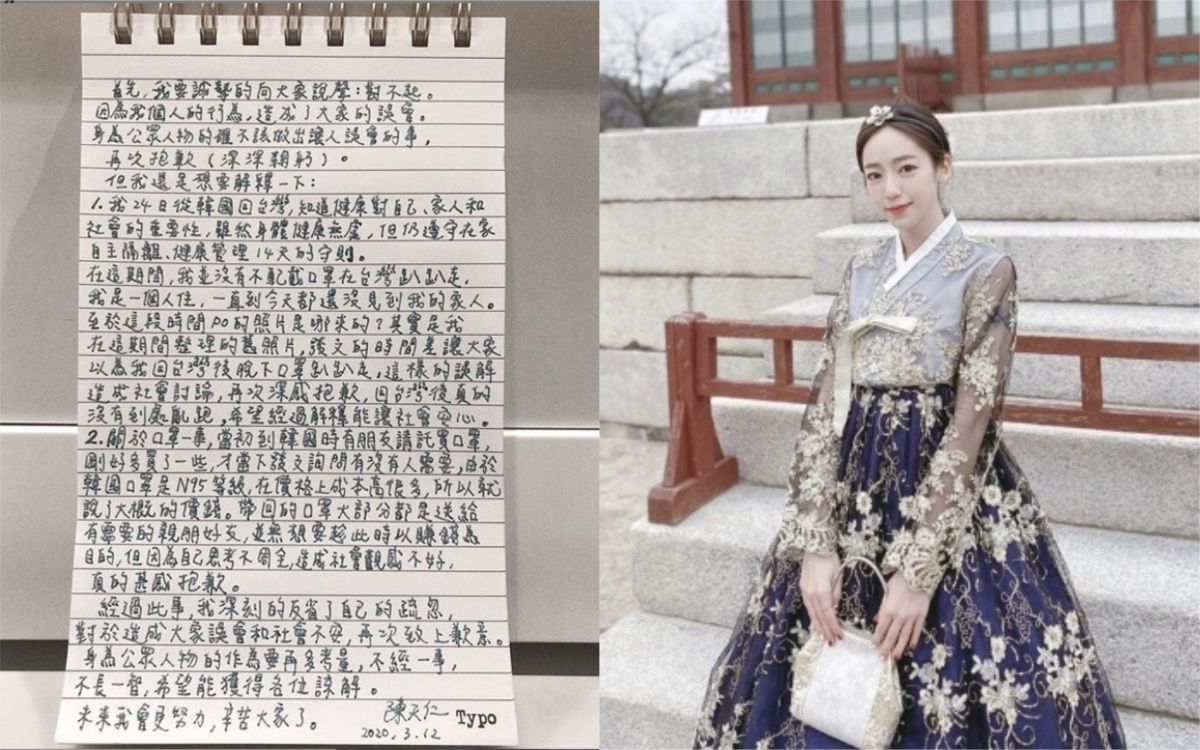 首先，我要誠摯的向大家說聲：對不起。
因為我個人的行為，造成了大家的誤會。
身為公眾人物的確不該做出讓人誤會的事，
再次抱歉（深深鞠躬）。
但我還是想要解釋一下：
1.我24日從韓國回台灣，知道健康對自己、家人和
社會的重要性，雖然身體健康無虞，但仍遵守在家
自主隔離、健康管理14天的守則。
在這期間，我並沒有不配戴口罩在台灣趴趴走，
我是一個人住，一直到今天都還沒見到我的家人。
至於這段時間PO的照片是哪來的？其實是我
在這期間整理的舊照片，發文的時間差讓大家
以為我回台灣後脫下口罩趴趴走，這樣的誤解
造成社會討論，再次深感抱歉，回台灣後真的
沒有到處亂跑，希望經過解釋能讓社會安心。
2.關於口罩一事，當初到韓國時有朋友請託買口罩，
剛好多買了一些，才當下發文詢問有沒有人需要，由於
韓國口罩是N95等級，在價格上成本高很多，所以就
說了大概的價錢。帶回的口罩大部分都是送給
有需要的親朋好友，並無想要趁此時以賺錢為
目的，但因為自己思考不周全，造成社會觀感不好，
真的甚感抱歉。
經過此事，我深刻的反省了自己的疏忽，
對於造成大家誤會和社會不安，再次致上歉意。
身為公眾人物的作為要再多考量，不經一事，
不長一智，希望能獲得各位諒解。
未來我會更努力，辛苦大家了。
陳天仁
Typo
2020.3.12